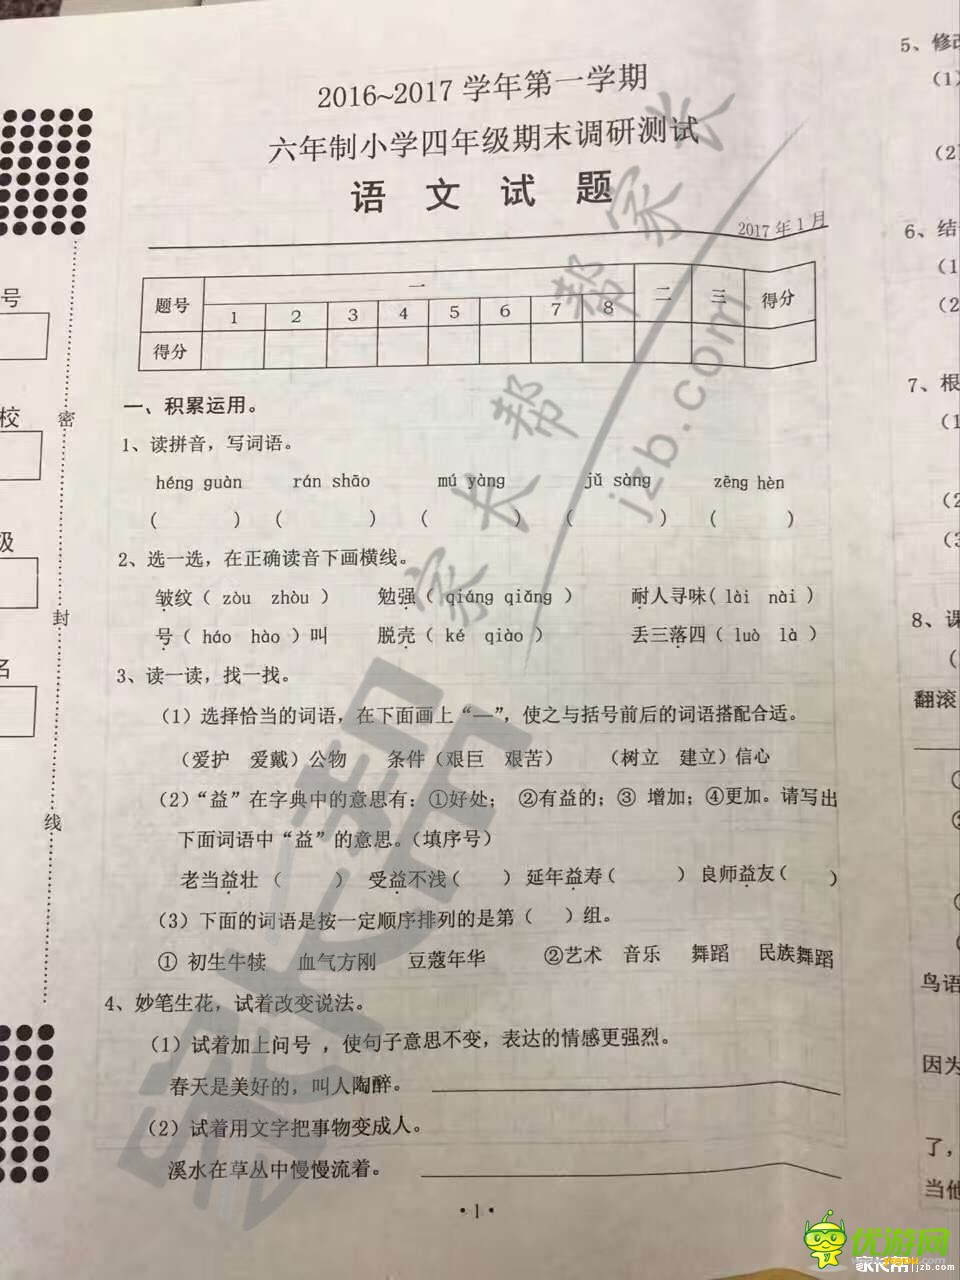 2016~2017 学年第一学期
六年制小学四年级期末调研测试
语 文 试 题
2017 年 1 月
题号 一 二 三 得分
1 2 3 4 5 6 7 8
得分
一、积累运用。
1、读拼音，写词语。
héng guàn rán shāo mú yàng jǔ sàng zēng hèn
( ) ( ) ( ) ( ) ( )
2、选一选，在正确读音下画横线。
皱纹（ zòu zhòu ） 勉强（ qiáng qiǎng ） 耐人寻味( lài nài )
号（ háo hào ）叫 脱壳（ ké qiào ） 丢三落四（ luò là ）
3、读一读，找一找。
（1）选择恰当的词语，在下面画上“—”，使之与括号前后的词语搭配合适。
（爱护 爱戴）公物 条件（艰巨 艰苦） （树立 建立）信心
（2）“益”在字典中的意思有：①好处； ②有益的；③ 增加；④更加。请写出
下面词语中“益”的意思。（填序号）
老当益壮（ ） 受益不浅（ ） 延年益寿（ ） 良师益友（ ）
（3）下面的词语是按一定顺序排列的是第（ ）组。
① 初生牛犊 血气方刚 豆蔻年华 ②艺术 音乐 舞蹈 民族舞蹈
4、妙笔生花，试着改变说法。
（1）试着加上问号 ，使句子意思不变，表达的情感更强烈。
春天是美好的，叫人陶醉。
（2）试着用文字把事物变成人。
溪水在草丛中慢慢流着。
·1·
号
校
级
名
密
封
线
5、修改
（1）
（2）
6、结
（1
（2
7、根
（1
（2
（3
8、课
翻滚
鸟语
因为
了，
当他
家长帮 家长帮
jzb.com
家长帮
优游网
家长帮 jzb.com